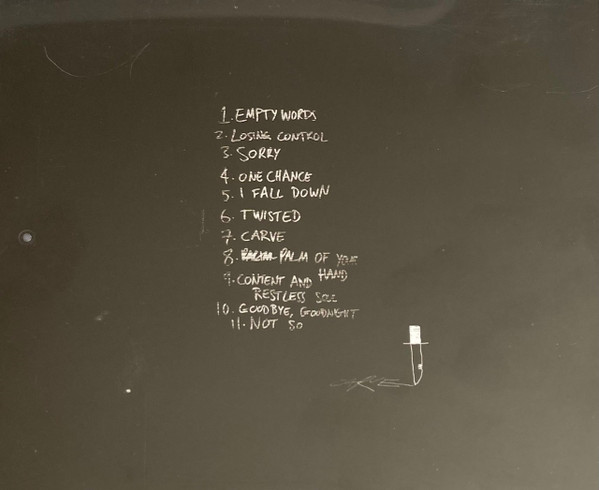 1. EMPTY WORDS
2. LOSING CONTROL
3. SORRY
4. ONE CHANCE
5. I FALL DOWN
6. TWISTED
7. CARVE
8. PALM OF YOUR
HAND
9. CONTENT AND
RESTLESS
10. GOODBYE, GOODNIGHT
11. NOT SO